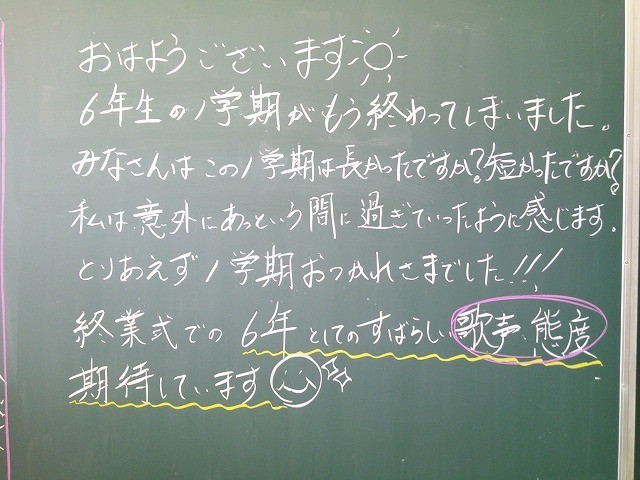 おはようございます
6年生の1学期がもう終わってしまいました。
みなさんはこの1学期は長かったですか?短かったですか?
私は意外にあっという間に過ぎていったように感じます。
とりあえず1学期おつかれさまでした!!!
終業式での6年としてのすばらしい歌声、態度
期待しています